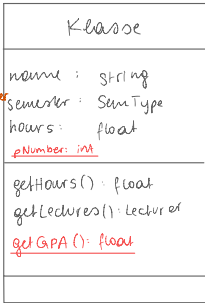 Klasse
name : String
semester : SemType
hours : float
pNumber: int
getHours() : float
getLectures() : Lecturer
getGPA() : float